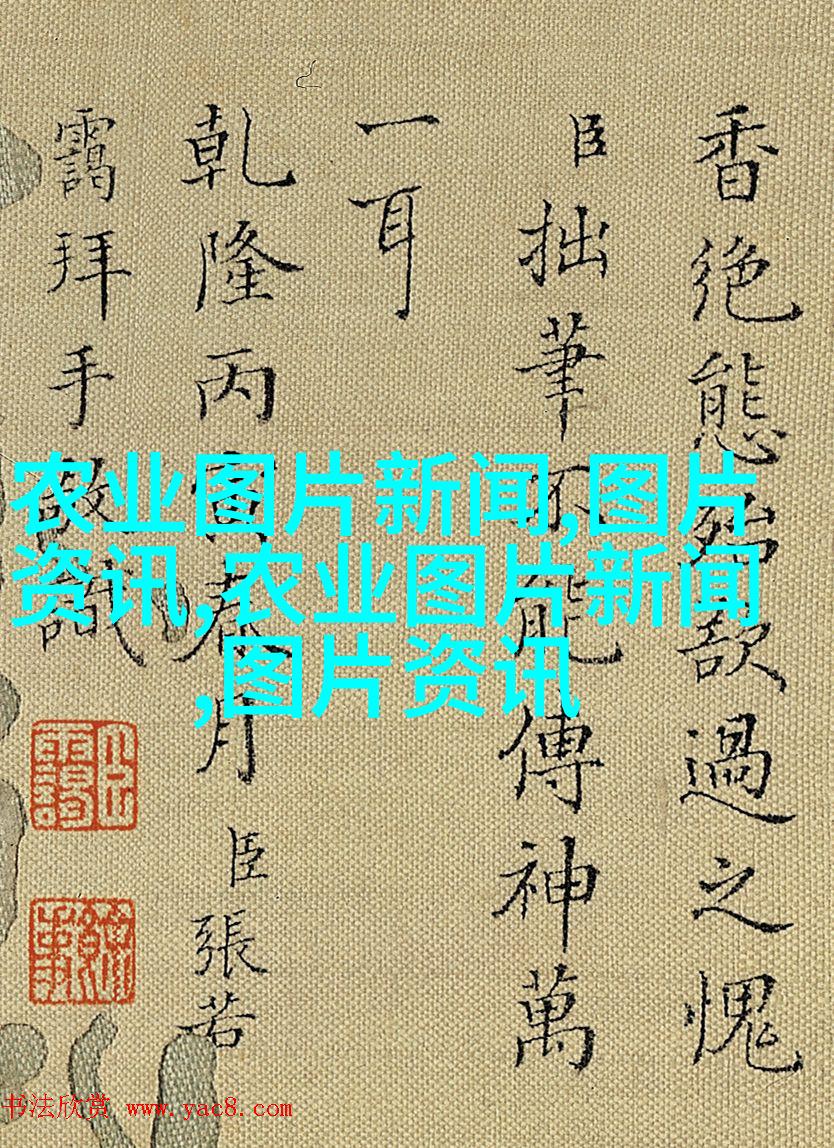 香絶態殆欲過之愧
臣拙筆不能傳神萬
一耳
乾隆丙寅春月臣張若
靄拜手敬識
农业图片新闻,图片
资讯,农业图片新闻
,图片资讯
书法欣赏 www.yac8.com